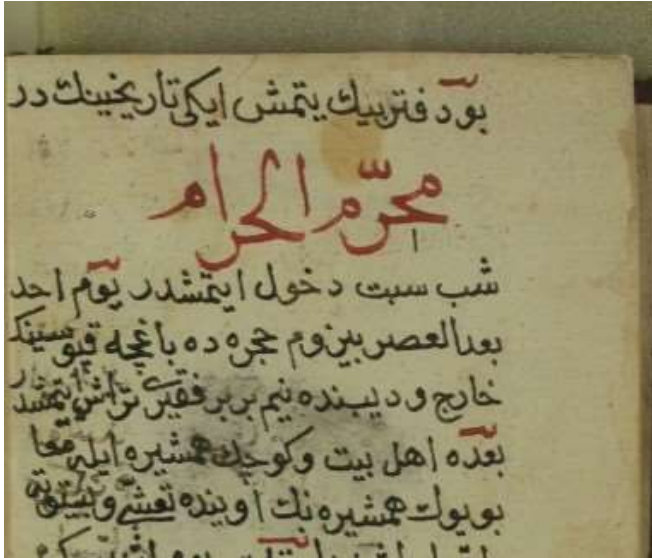 بو دفتر بيك يتمش ايكى تاريخينك در
محرّم الحرام
شب سبت دخول ايتمشدر يوم احد
بعد العصر بيزوم حجره ده باغچه قپوسينك
خارج و ديبنده نيم بربر فقيرى تراش ايتمشدر
بعده اهل بيت و كوچك همشيره ايله معا
بويوك همشيره نك اوينده تعشى و بيتوتة